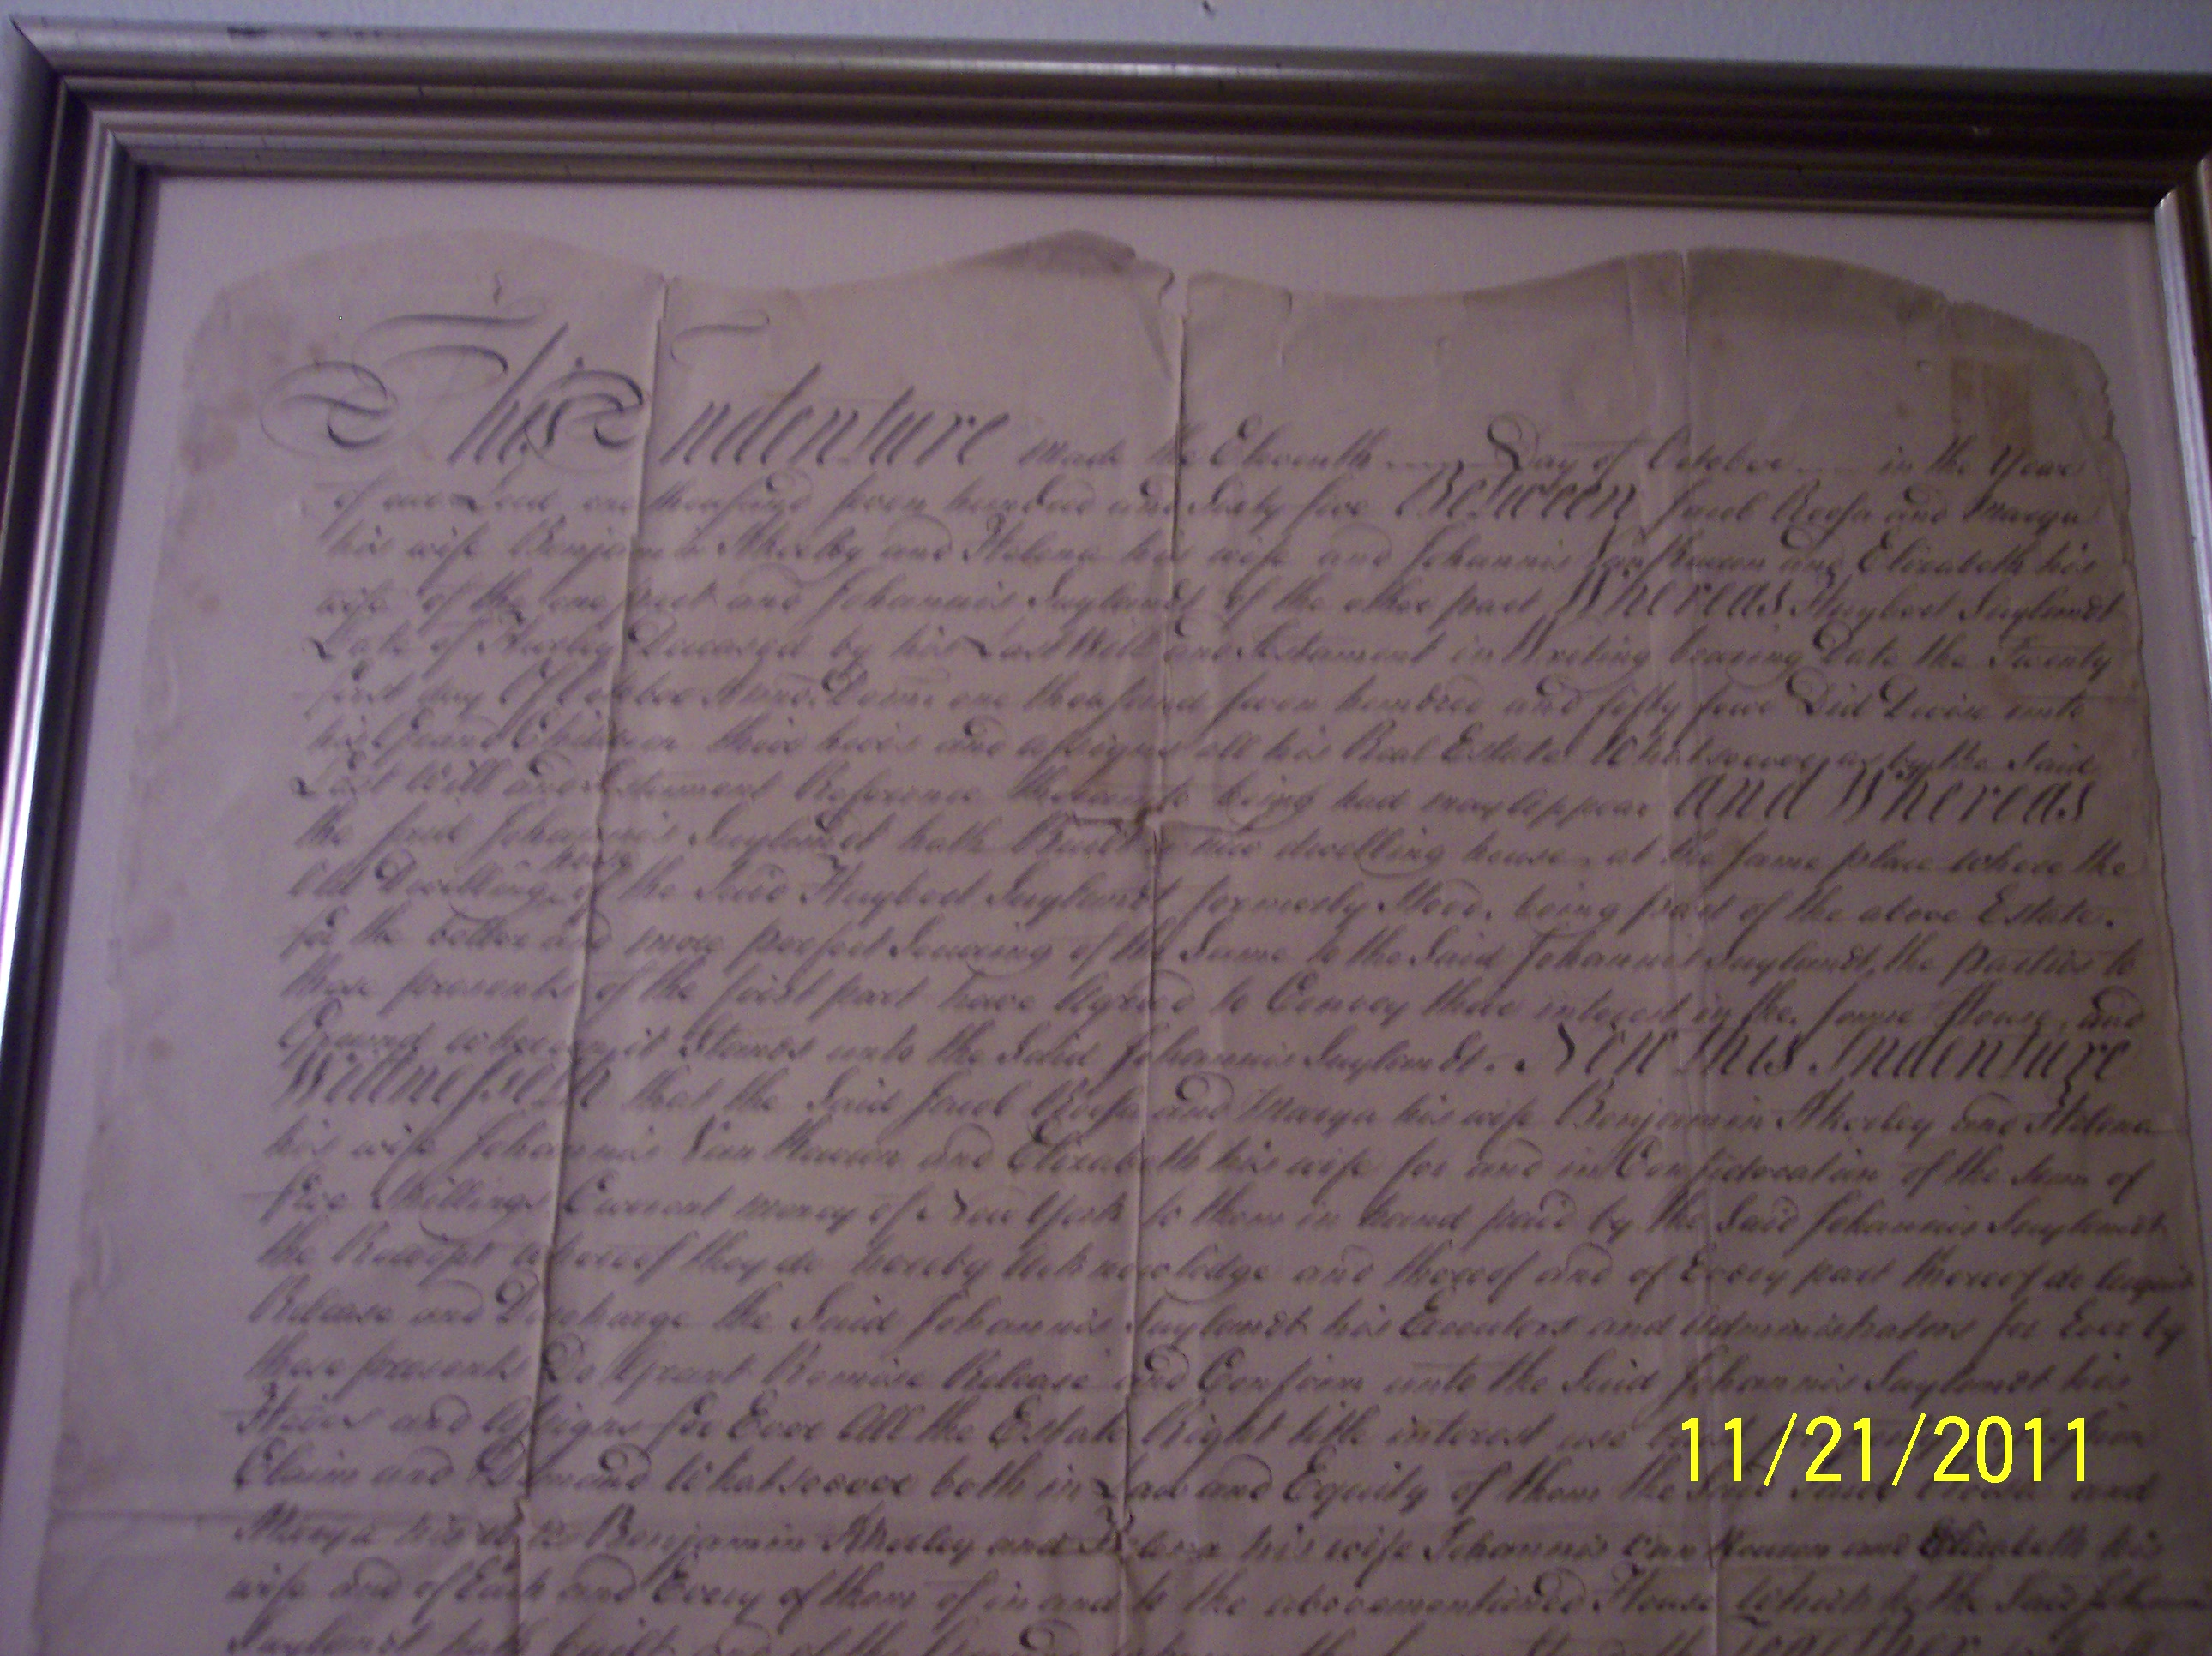 This Indenture made the Eleventh Day of October in the Year
of our Lord one thousand seven hundred and Sixty five Between Jacob Roosa and Marya
his wife Benjamin Akerley and Helena his wife and Johannis Van Keuren and Elizabeth his
wife of the one part and Johannis Suylandt of the other part Whereas Huybert Suylandt
Late of Hurley Deceased by his Last Will and Testament in Writing bearing Date the Twenty
first day Of October Anno Domi one thousand seven hundred and fifty four Did Devise unto
his Grand Children their heirs and assigns all his Real Estate Whatsoever as by the Said
Last Will and Testament Reference thereunto being had may appear And Whereas
the said Johannis Suylandt hath Built a new dwelling house at the same place where the
Old Dwelling house of the Said Huybert Suylandt formerly Stood, being part of the above Estate.
for the better and more perfect Securing of the Same to the Said Johannis Suylandt, the parties to
these presents of the first part have Agreed to Convey their interest in the same House, and
Ground whereon it Stands unto the Said Johannis Suylandt. Now this Indenture
Witnesseth that the Said Jacob Roosa and Marya his wife Benjamin Akerley and Helena
his wife Johannis Van Keuren and Elizabeth his wife for and in Consideration of the Sum of
five Shillings Current money of New York to them in hand paid by the Said Johannis Suylandt
the Receipt whereof they do hereby Acknowledge and thereof and of Every part thereof do Acquit
Release and Discharge the Said Johannis Suylandt his Executors and Administrators for Ever by
these presents Do Grant Remise Release and Confirm unto the Said Johannis Suylandt his
Heirs and Assigns for Ever All the Estate Right title interest use
Claim and Demand Whatsoever both in Law and Equity of them the Said Jacob Roosa and
Marya his wife Benjamin Akerley and Helena his wife Johannis Van Keuren and Elizabeth his
wife and of Each and Every of them of in and to the abovementioned House Which he the Said Johannis
Suylandt hath built and of the Ground Together
11/21/2011